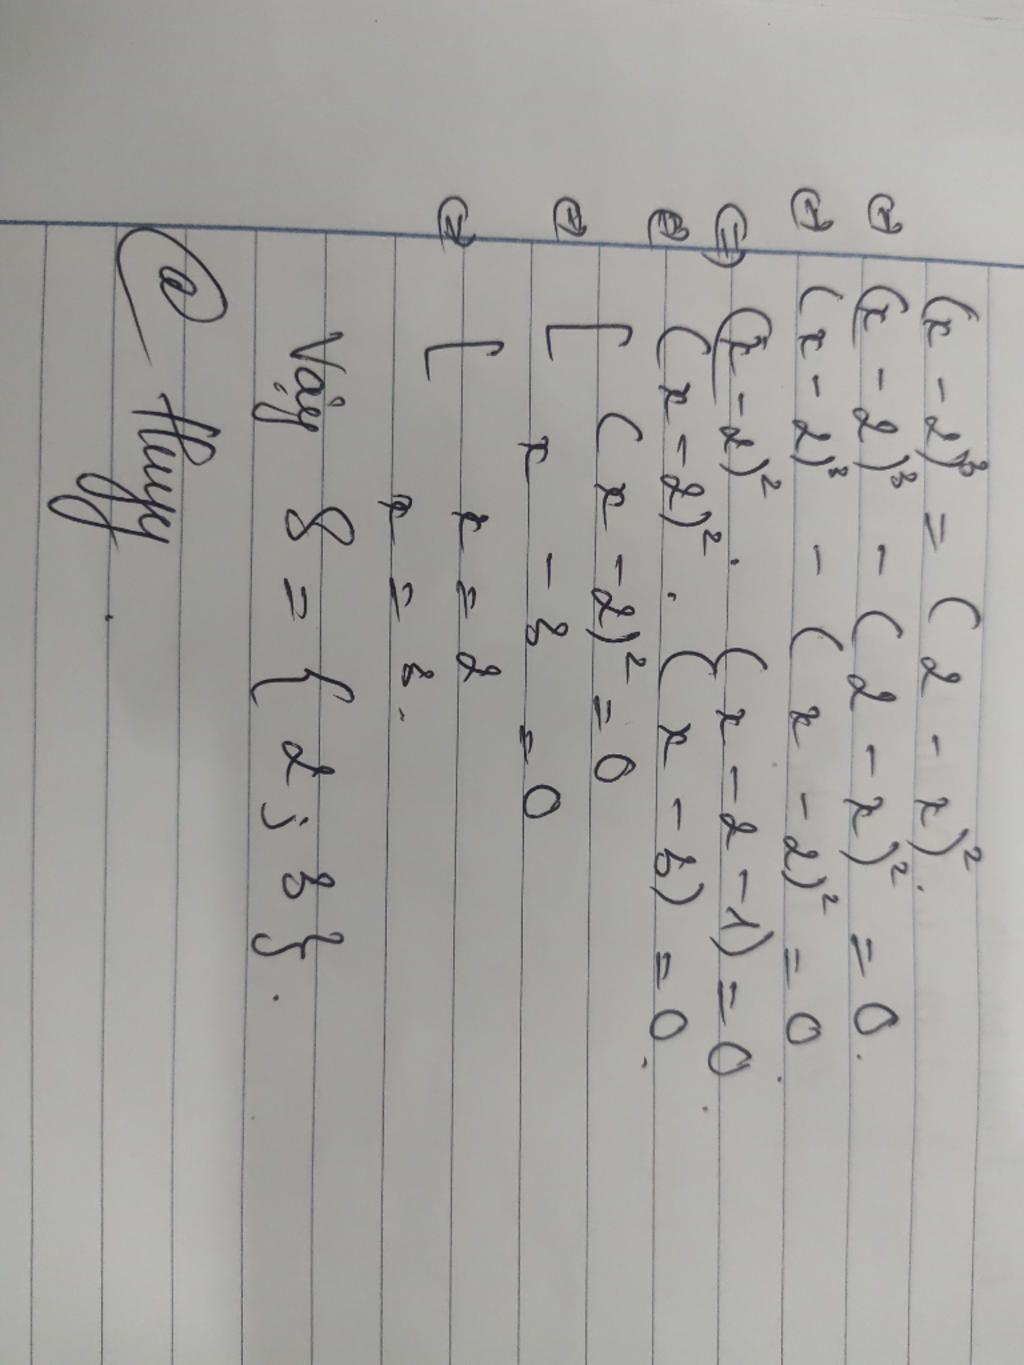 (x - 2)³ = (2 - x)².
⇔ (x - 2)³ - (2 - x)² = 0.
⇔ (x - 2)³ - (x - 2)² = 0
⇔ (x - 2)² . (x - 2 - 1) = 0.
⇔ (x - 2)² . (x - 3) = 0.
⇔ [ (x - 2)² = 0
x - 3 = 0
⇔ [ x = 2
x = 3.
Vậy S = { 2 ; 3 }.